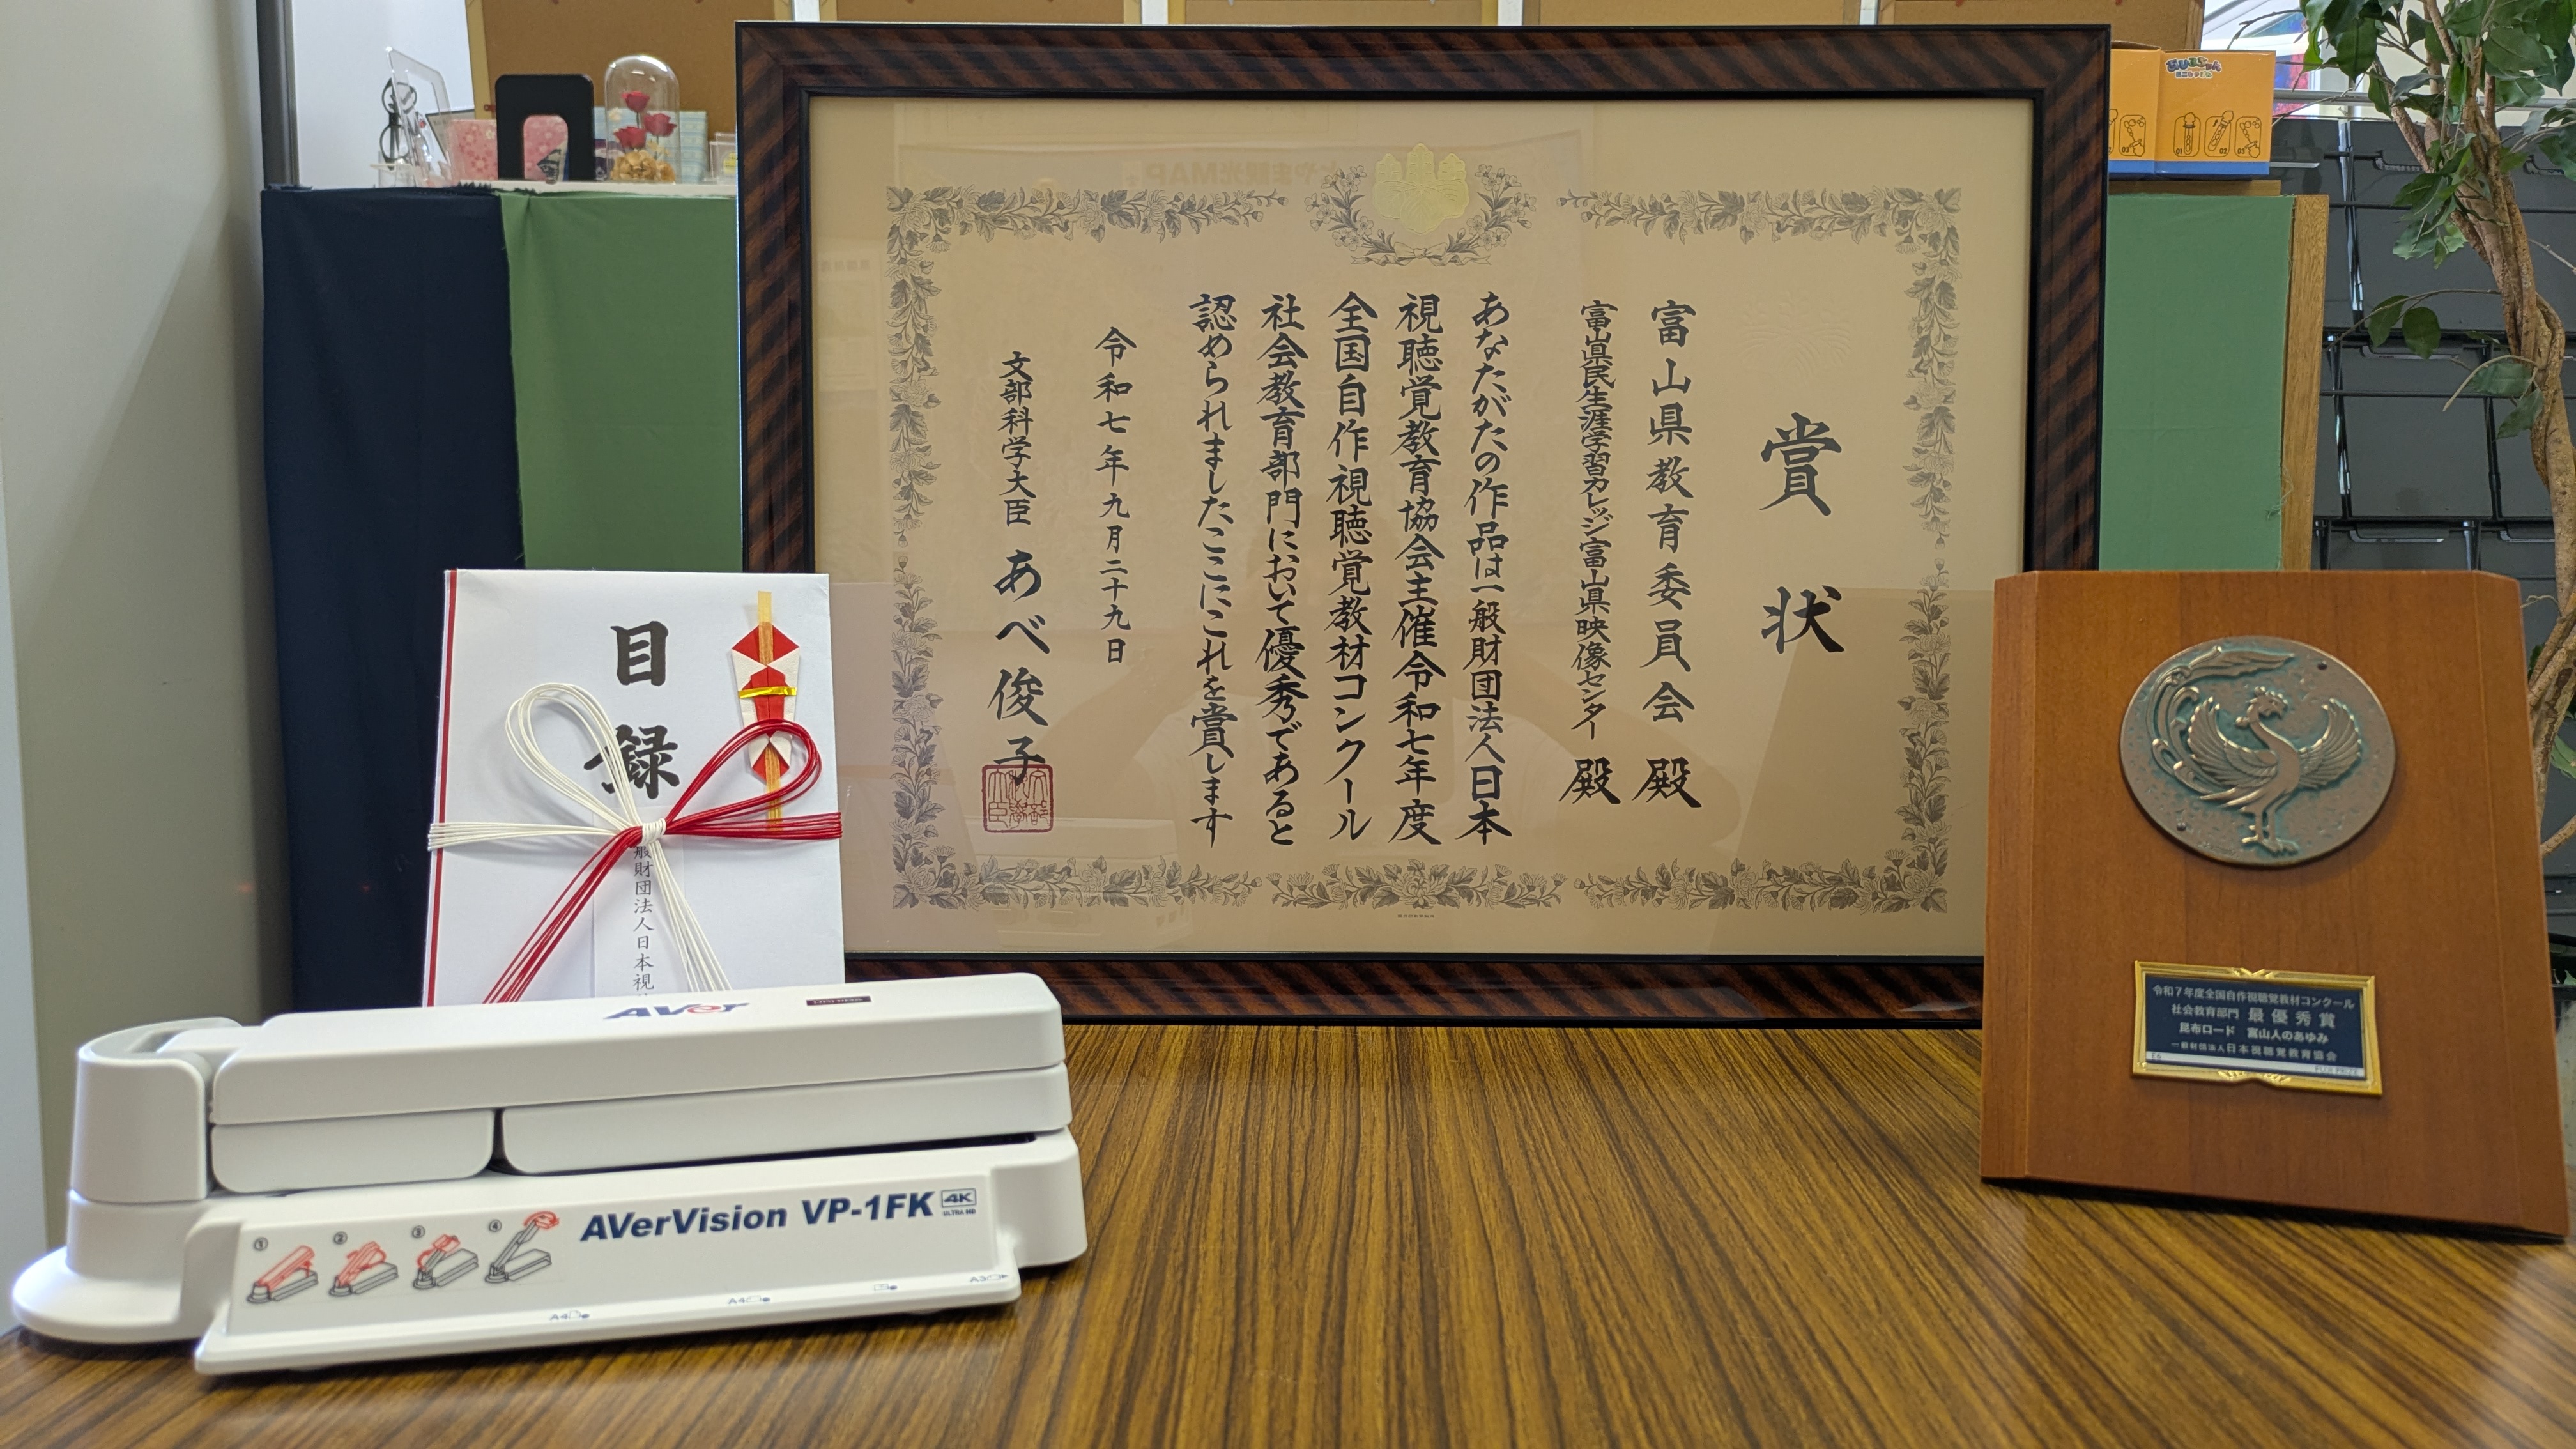 賞状
富山県教育委員会 殿
富山県民生涯学習カレッジ富山県映像センター 殿
あなたがたの作品は一般財団法人日本
視聴覚教育協会主催令和七年度
全国自作視聴覚教材コンクール
社会教育部門において優秀であると
認められましたここにこれを賞します
令和七年九月二十九日
文部科学大臣 あべ俊子
目録
般財団法人日本視
AVer
AVerVision VP-1FK 4K
ULTRA HD
① ② ③ ④
A4
A4
A3
令和7年度全国自作視聴覚教材コンクール
社会教育部門 最優秀賞
昆布ロード 富山人のあゆみ
一般財団法人日本視聴覚教育協会
FUJI PRIZE
とやま観光MAP
01 02 03